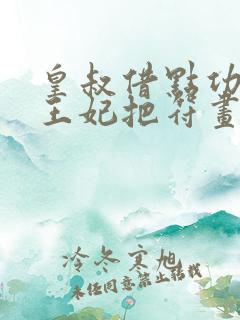 皇叔借點功
王妃把符畫
冷冬寒旭
未经同意禁止转载